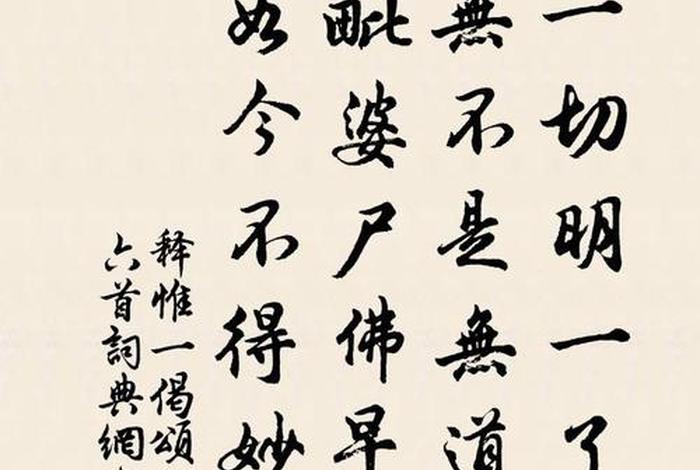 一切明一了
無不是無道
毗婆尸佛早
如今不得妙
释惟一偈頌
六首詞典網